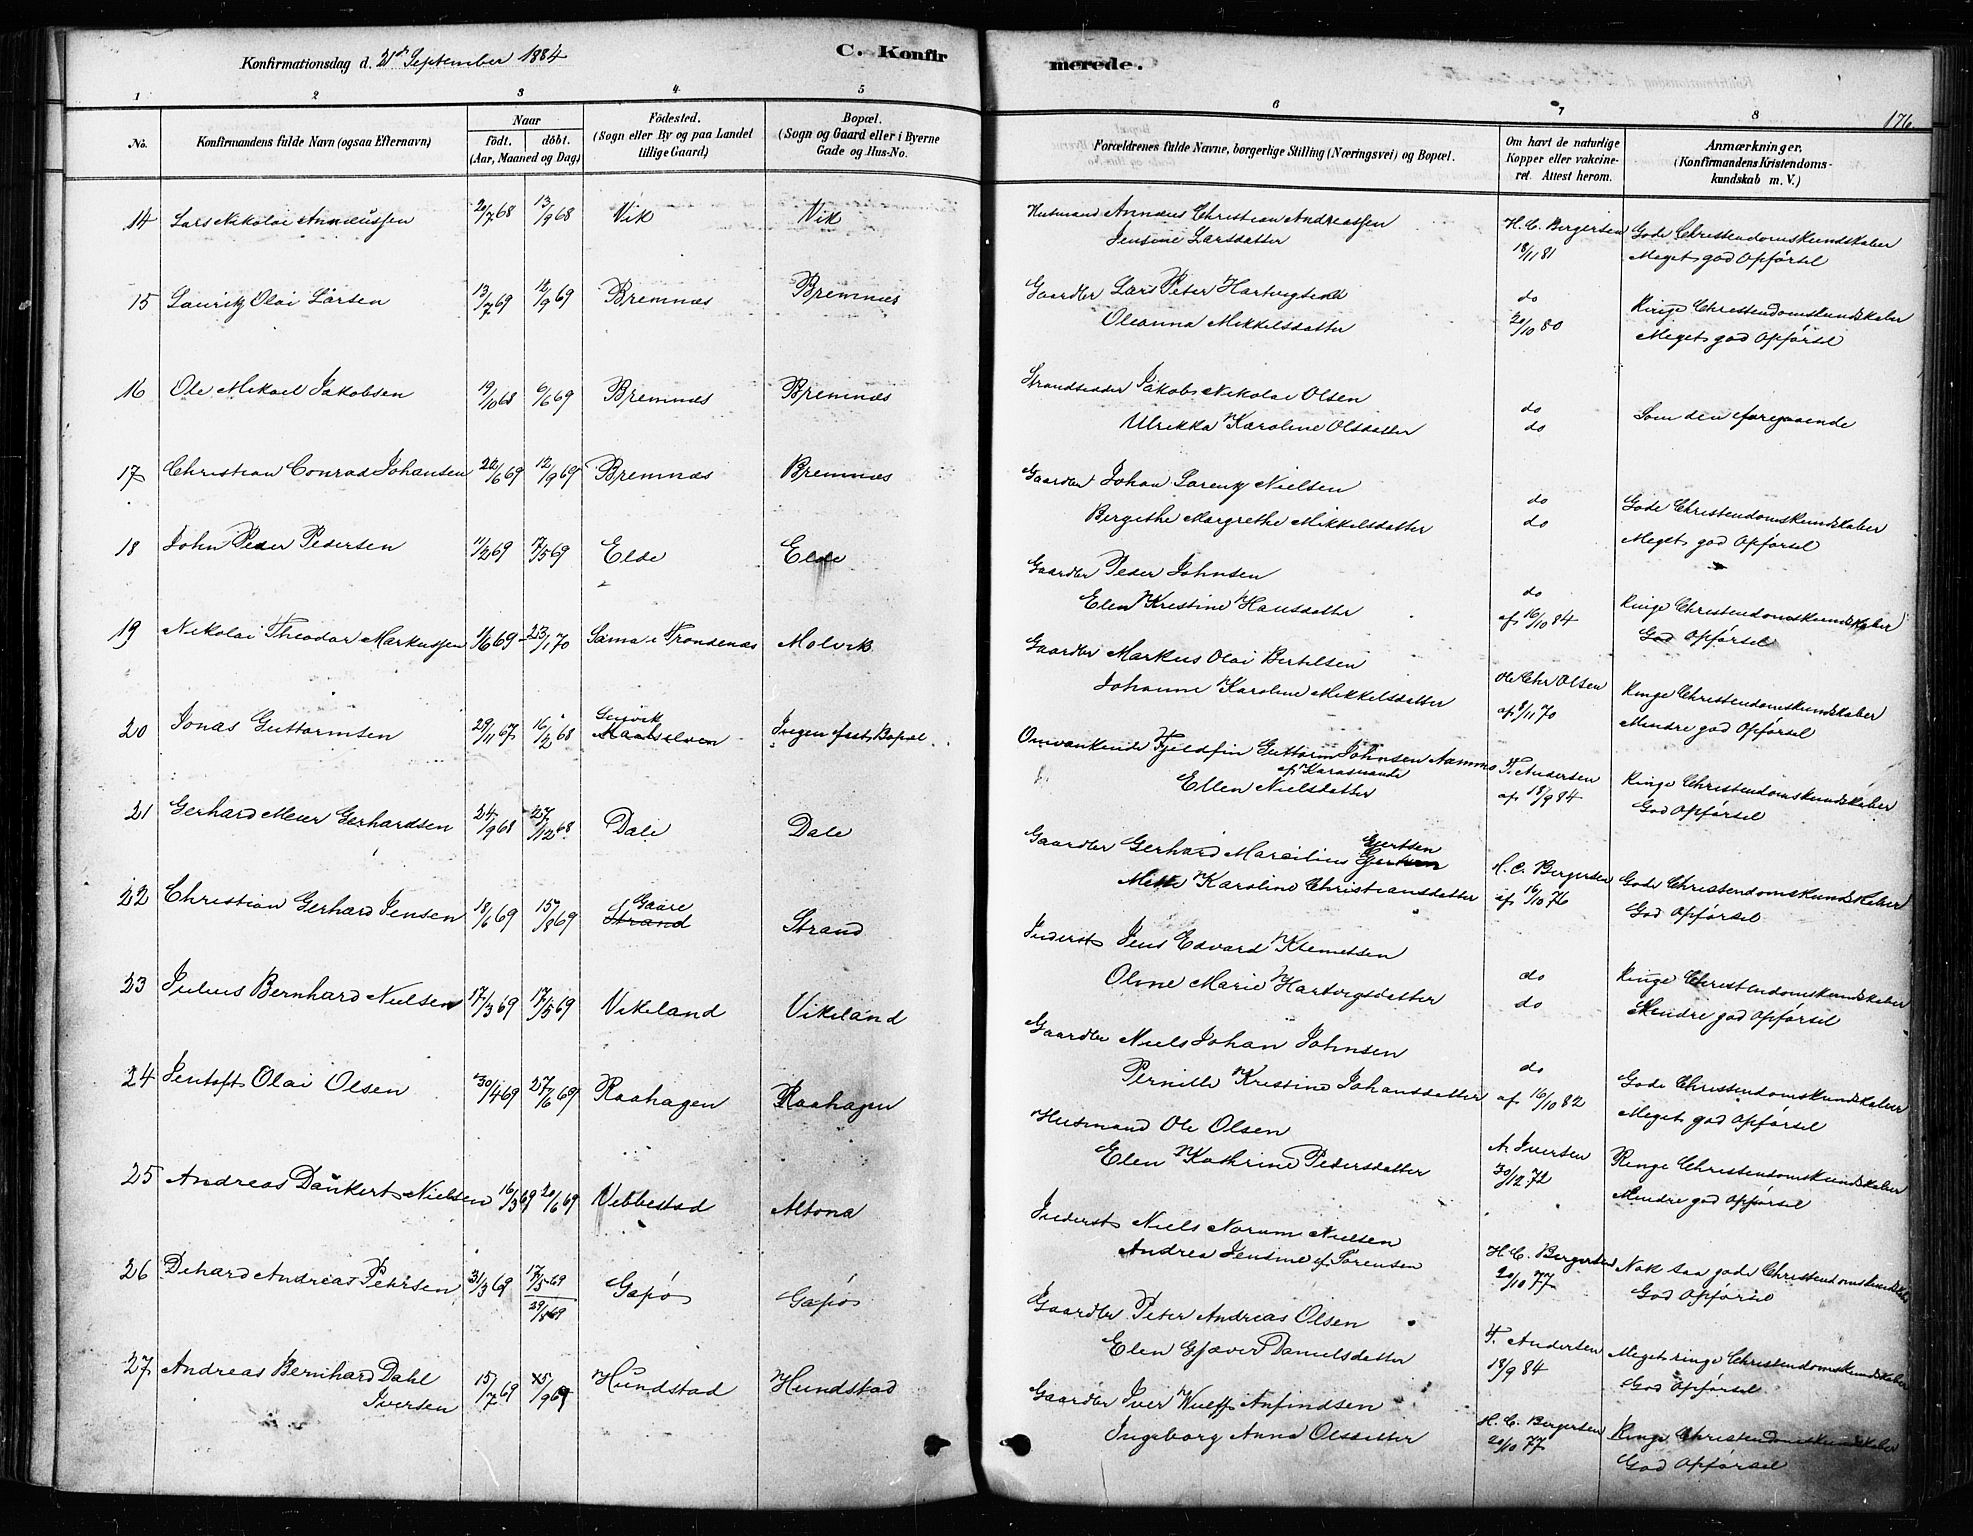 Konfirmationsdag d. 21de September 1884
C. Konfirmerede.
176
1 2 3 4 5 6 7 8
No. Konfirmandens fulde Navn (ogsaa Efternavn) Naar födt. döbt. (Aar, Maaned og Dag) Födested. (Sogn eller By og paa Landet tillige Gaard) Bopæl. (Sogn og Gaard eller i Byerne Gade og Hus-No. Forældrenes fulde Navne, borgerlige Stilling (Næringsvei) og Bopæl. Om havt de naturlige Kopper eller vakcineret. Attest herom. Anmærkninger. (Konfirmandens Kristendomskundskab m. V.)
14 Lars Nikolai Annæussen 20/7 68 13/9 68 Vik Vik Husmand Annæus Christian Andreassen H. C. Bergersen Gode Christendomskundskaber
Jensine Larsdatter 18/11 81 Meget god Opførsel
15 Lauritz Olai Larsen 13/7 69 12/9 69 Bremnæs Bremnæs Gaardbr Lars Peter Hartvigsen do Ringe Christendomskundskaber
Oleanna Mikkelsdatter 20/10 80 Meget god Opførsel
16 Ole Mikael Jakobsen 19/10 68 6/6 69 Bremnæs Bremnæs Strandsidder Jakob Nikolai Olsen do Som den foregaaende
Ulrikka Karoline Olsdatter do
17 Christian Conrad Johansen 22/6 69 12/9 69 Bremnæs Bremnæs Gaardbr Johan Lorentz Nielsen do Gode Christendomskundskaber
Bergithe Margrethe Mikkelsdatter do Meget god Opførsel
18 John Peder Pedersen 11/2 69 17/5 69 Elde Elde Gaardbr Peder Johnsen do Ringe Christendomskundskaber
Elen Kristine Hansdatter af 16/10 84 God Opførsel
19 Nikolai Theodor Markussen 1/6 69 23/1 70 Sama i Trondenæs Molvik Gaardbr Markus Olai Bertelsen Ole Chr Olsen Ringe Christendomskundskaber
Johanne Karoline Mikkelsdatter af 8/11 70 Mindre god Opførsel
20 Jonas Guttormsen 29/11 67 16/2 68 Maalselven Ingen fast Bopæl Omvankende Fjeldfin Guttorm Johnsen Aamma T. Andersen Ringe Christendomskundskaber
Ellen Nielsdatter af 18/9 84 God Opførsel
21 Gerhard Meier Gerhardsen 24/9 68 27/12 68 Dale Dale Gaardbr Gerhard Marcilius Gjertsen H. C. Bergersen Gode Christendomskundskaber
Mette Karoline Christiansdatter af 16/10 76 God Opførsel
22 Christian Gerhard Jensen 18/6 69 15/8 69 Gaare Strand Strand Inderst Jens Edvard Klemetsen do Ringe Christendomskundskaber
Oline Marie Hartvigsdatter do Mindre god Opførsel
23 Julius Bernhard Nielsen 17/3 69 17/5 69 Vikeland Vikeland Gaardbr Niels Johan Johnsen do Gode Christendomskundskaber
Pernille Kristine Johansdatter af 16/10 82 Meget god Opførsel
24 Jentoft Olai Olsen 30/4 69 27/6 69 Raahagen Raahagen Husmand Ole Olsen A. Iversen Ringe Christendomskundskaber
Elen Kathrine Pedersdatter 30/12 72 Mindre god Opførsel
25 Andreas Dankert Nielsen 16/3 69 20/6 69 Vebbestad Altona Inderst Niels Norum Nielsen H. C. Bergersen Nok saa gode Christendomskundskaber
Andrea Jensine Sørensen 20/10 77 God Opførsel
26 Dehard Andreas Petersen 31/3 69 17/5 69 Gapø Gapø Gaardbr Peter Andreas Olsen T. Andersen Meget ringe Christendomskundskaber
29/8 69 Elen Gjæver Danielsdatter 18/9 84 God Opførsel
27 Andreas Bernhard Dahl 15/7 69 15/9 69 Hundstad Hundstad Gaardbr Iver Wulff Anfindsen H. C. Bergersen Ringe Christendomskundskaber
Iversen Ingeborg Anna Olsdatter 20/10 77 God Opførsel